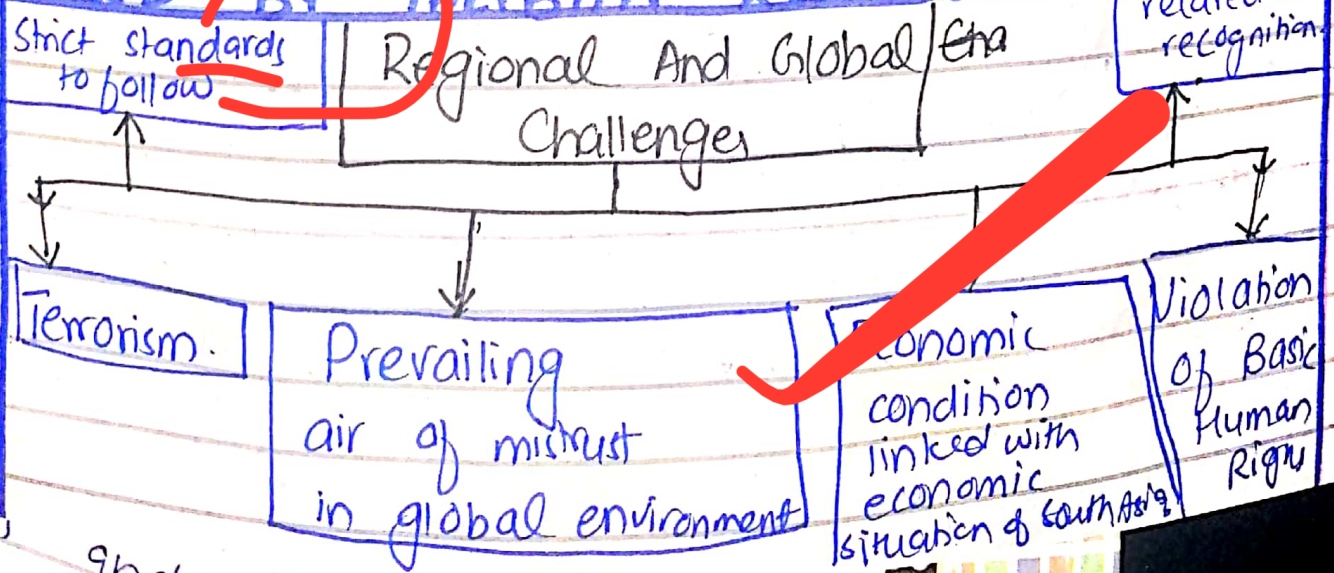 Strict standards
to follow
Regional And Global
Challenges
recognition.
Terrorism.
Prevailing
air of mistrust
in global environment
Economic
condition
linked with
economic
situation of South Asia
Violation
of Basic
Human
Right